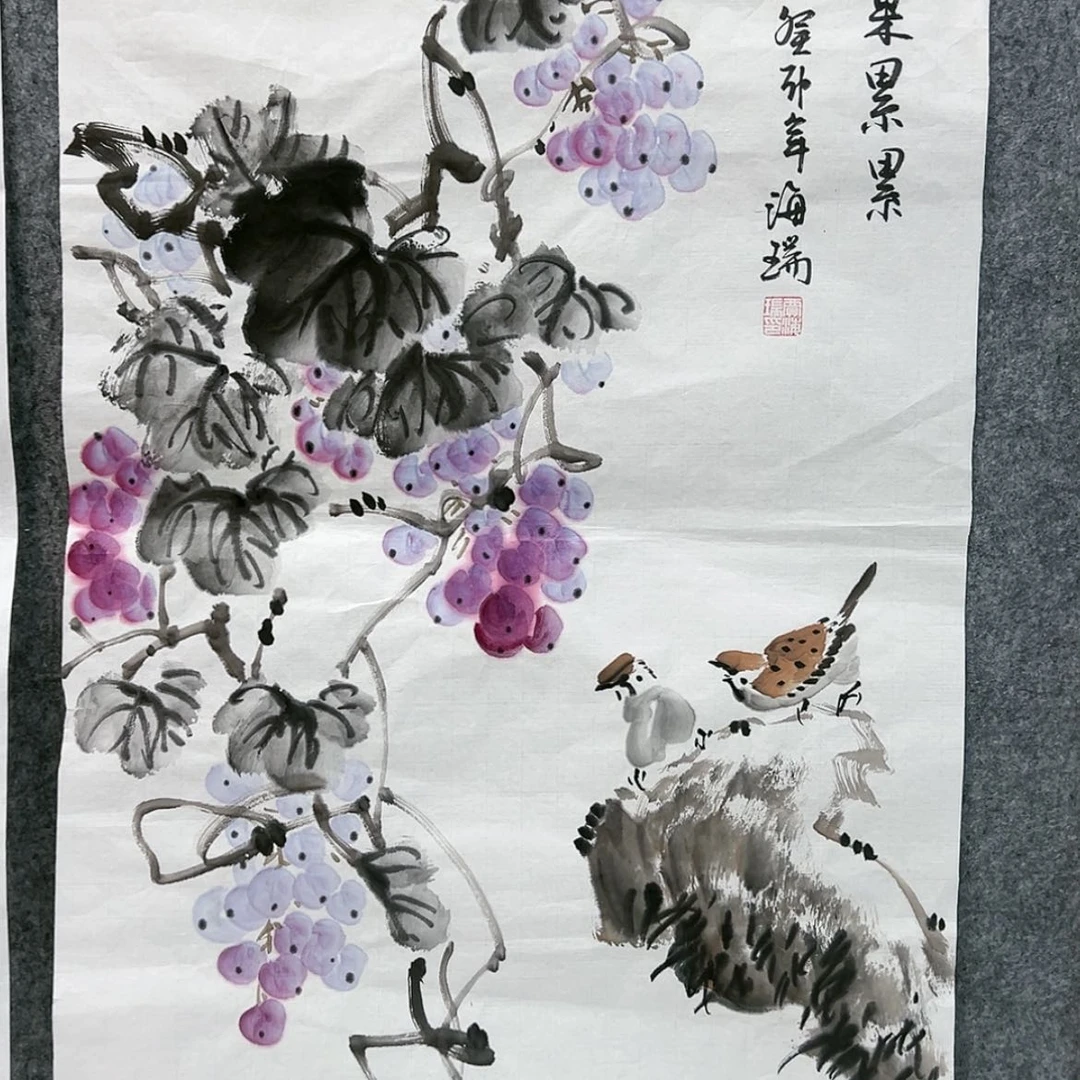 果累累
癸卯年海瑞